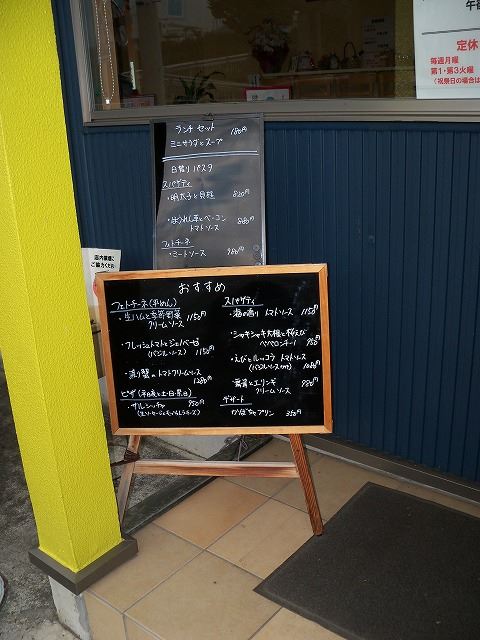 午
定休
毎週月曜
第1・第3火曜
(祝祭日の場合は
ランチ セット 180円
ミニサラダとスープ
日替り パスタ
スパゲティ
・明太子と貝柱 820円
・ほうれん草とベーコン
トマトソース 860円
フェトチーネ
・ミートソース 980円
店内禁煙に
ご協力ください
おすすめ
フェトチーネ(平めん)
・生ハムと季節野菜
クリームソース 1150円
・フレッシュトマトとジェノベーゼ
(バジルソース) 1150円
・渡り蟹のトマトクリームソース
1280円
ピザ (平日夜と土・日・祭日)
・サルシッチャ 950円
スパゲティ
・海の香り トマトソース 1150円
・シャキシャキ大根と桜えび
ペペロンチーノ 950円
・えびとルッコラ トマトソース
(バジルソースでも可) 1080円
クリームソース 980円
デザート
かぼちゃプリン 350円